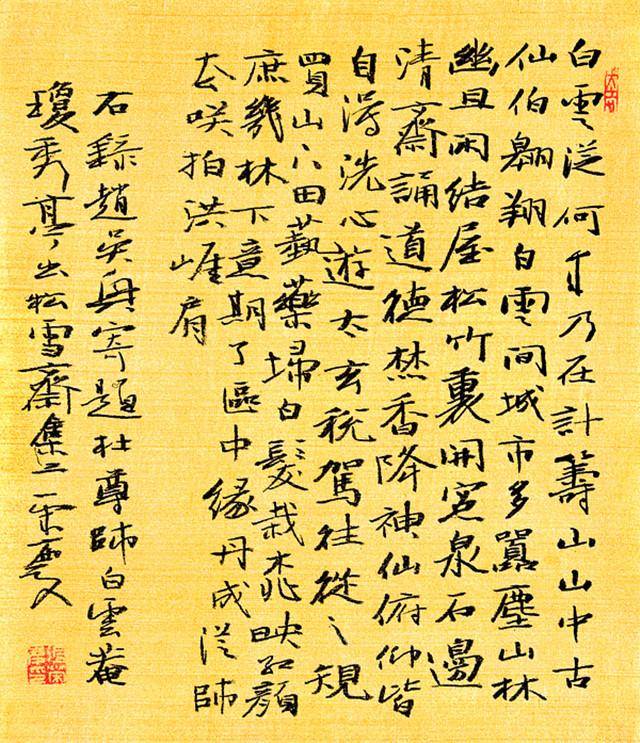 白雲從何来乃在計籌山山中古
仙伯翱翔白雲間城市多囂塵山林
幽且閑結屋松竹裏開窓泉石邊
清齋誦道德焚香降神仙俯仰皆
自得洗心遊太玄稅駕往從之規
買山下田藝藥掃白髮栽桃映紅顏
庶幾林下意期了區中緣丹成從師
去咲拍洪崕肩
右錄趙吳興寄題杜尊師白雲菴
瓊秀亭出松雪齋集二